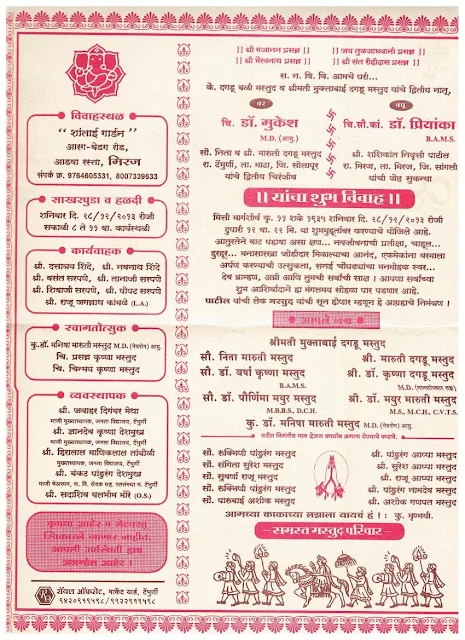 || श्री गजानन प्रसन्न ||
|| जय तुळजाभवानी प्रसन्न ||
|| श्री भैरवनाथ प्रसन्न ||
|| श्री संत रोहीदास प्रसन्न ||
स. न. वि. वि. आमचे घरी...
कै. दगडू बळी मस्तुद व श्रीमती मुक्ताबाई दगडू मस्तुद यांचे द्वितीय नातू,
वर
चि. डॉ. मुकेश
M.D. (आयु.)
सौ. निता व श्री. मारुती दगडू मस्तुद
रा. टेंभुर्णी, ता. माढा, जि. सोलापूर
यांचे द्वितीय चिरंजीव
वधू
चि.सौ.कां. डॉ. प्रियांका
B.A.M.S.
श्री. शशिकांत निवृत्ती पाटील
रा. मिरज, ता. मिरज, जि. सांगली
यांची जेष्ठ सुकन्या
|| यांचा शुभ विवाह ||
मिती मार्गशीर्ष कृ. ११ शके १९३५ शनिवार दि. २८/१२/२०१३ रोजी
दुपारी १२ वा. २२ मि. या शुभमुहूर्तावर करण्याचे योजिले आहे.
आतुरतेने वाट पहाता असा क्षण... नवजीवनाची प्रतीक्षा, चाहूल...
हुरहूर... मनासारखा जोडीदार मिळाल्याचा आनंद, एकमेकांना वरमाला
अर्पण करण्याची उत्सुकता, सनई चौघड्यांचा मनमोहक स्वर...
देव ब्राम्हण, अग्नी आणि तुमची सर्वांची साक्ष । आपणा सर्वांच्या
शुभ आशिर्वादाने हा मंगलमय सोहळा पार पडणार आहे.
पाटील यांची लेक मस्तुद यांची सून होणार म्हणून हे आग्रहाचे निमंत्रण !
आपले नम्र
श्रीमती मुक्ताबाई दगडू मस्तुद
सौ. निता मारुती मस्तुद
श्री. मारुती दगडू मस्तुद
सौ. डॉ. वर्षा कृष्णा मस्तुद
B.A.M.S.
श्री. डॉ. कृष्णा दगडू मस्तुद
सौ. डॉ. पौर्णिमा मयुर मस्तुद
M.B.B.S., D.C.H.
श्री. डॉ. मयुर मारुती मस्तुद
M.S., M.C.H., C.V.T.S.
कु. डॉ. मनिषा मारुती मस्तुद M.D. (नेत्ररोग) आयु.
वरील निमंत्रीत मान देऊन कार्यास अगत्य येणेचे करावे.
सौ. रुक्मिणी पांडुरंग मस्तुद
श्री. पांडुरंग आप्पा मस्तुद
सौ. संगिता सुरेश मस्तुद
श्री. सुरेश आप्पा मस्तुद
सौ. सुवर्णा राजू मस्तुद
श्री. राजू आप्पा मस्तुद
सौ. रुक्मिणी पांडुरंग मस्तुद
श्री. पांडुरंग नामदेव मस्तुद
सौ. पारुबाई अशोक मस्तुद
श्री. अशोक गणपत मस्तुद
आमच्या काकाच्या लग्नाला यायचं हं ! : कु. मृण्मयी.
समस्त मस्तुद परिवार
विवाहस्थळ
" शांताई गार्डन "
आरग-बेडग रोड,
आडवा रस्ता, मिरज
संपर्क क्र. 9764605331, 8007339633
साखरपुडा व हळदी
शनिवार दि. २८/१२/२०१३ रोजी
सकाळी ८ ते ११ वा. कार्यस्थळी
कार्यवाहक
श्री. दत्तात्रय शिंदे, श्री. नवनाथ शिंदे
श्री. वसंत सरपणे, श्री. तानाजी सरपणे
श्री. शिवाजी सरपणे, श्री. पोपट सरपणे
श्री. राजू जगन्नाथ कांबळे (L.A.)
स्वागतोत्सुक
कु.डॉ. मनिषा मारुती मस्तुद M.D. (नेत्ररोग) आयु.
चि. प्रसन्न कृष्णा मस्तुद
चि. चिन्मय कृष्णा मस्तुद
व्यवस्थापक
श्री. जवाहर दिगंबर मेथा
माजी मुख्याध्यापक, जनता विद्यालय, टेंभुर्णी
श्री. ज्ञानदेव कृष्णा देशमुख
माजी मुख्याध्यापक, जनता विद्यालय, टेंभुर्णी
श्री. हिरालाल माणिकलाल तांबोळी
मुख्याध्यापक, जनता विद्यालय, टेंभुर्णी
श्री. बंकट पांडुरंग देशमुख
श्री. सदाशिव बलभीम मोरे (O.S.)
कृपया आहेर व भेटवस्तू
स्विकारले जाणार नाहीत.
आपली उपस्थिती हाच
अनमोल आहेर !
रॉयल ऑफसेट, मार्केट यार्ड, टेंभुर्णी
९४२०९१९५९८ / ९९२२९१९५९८